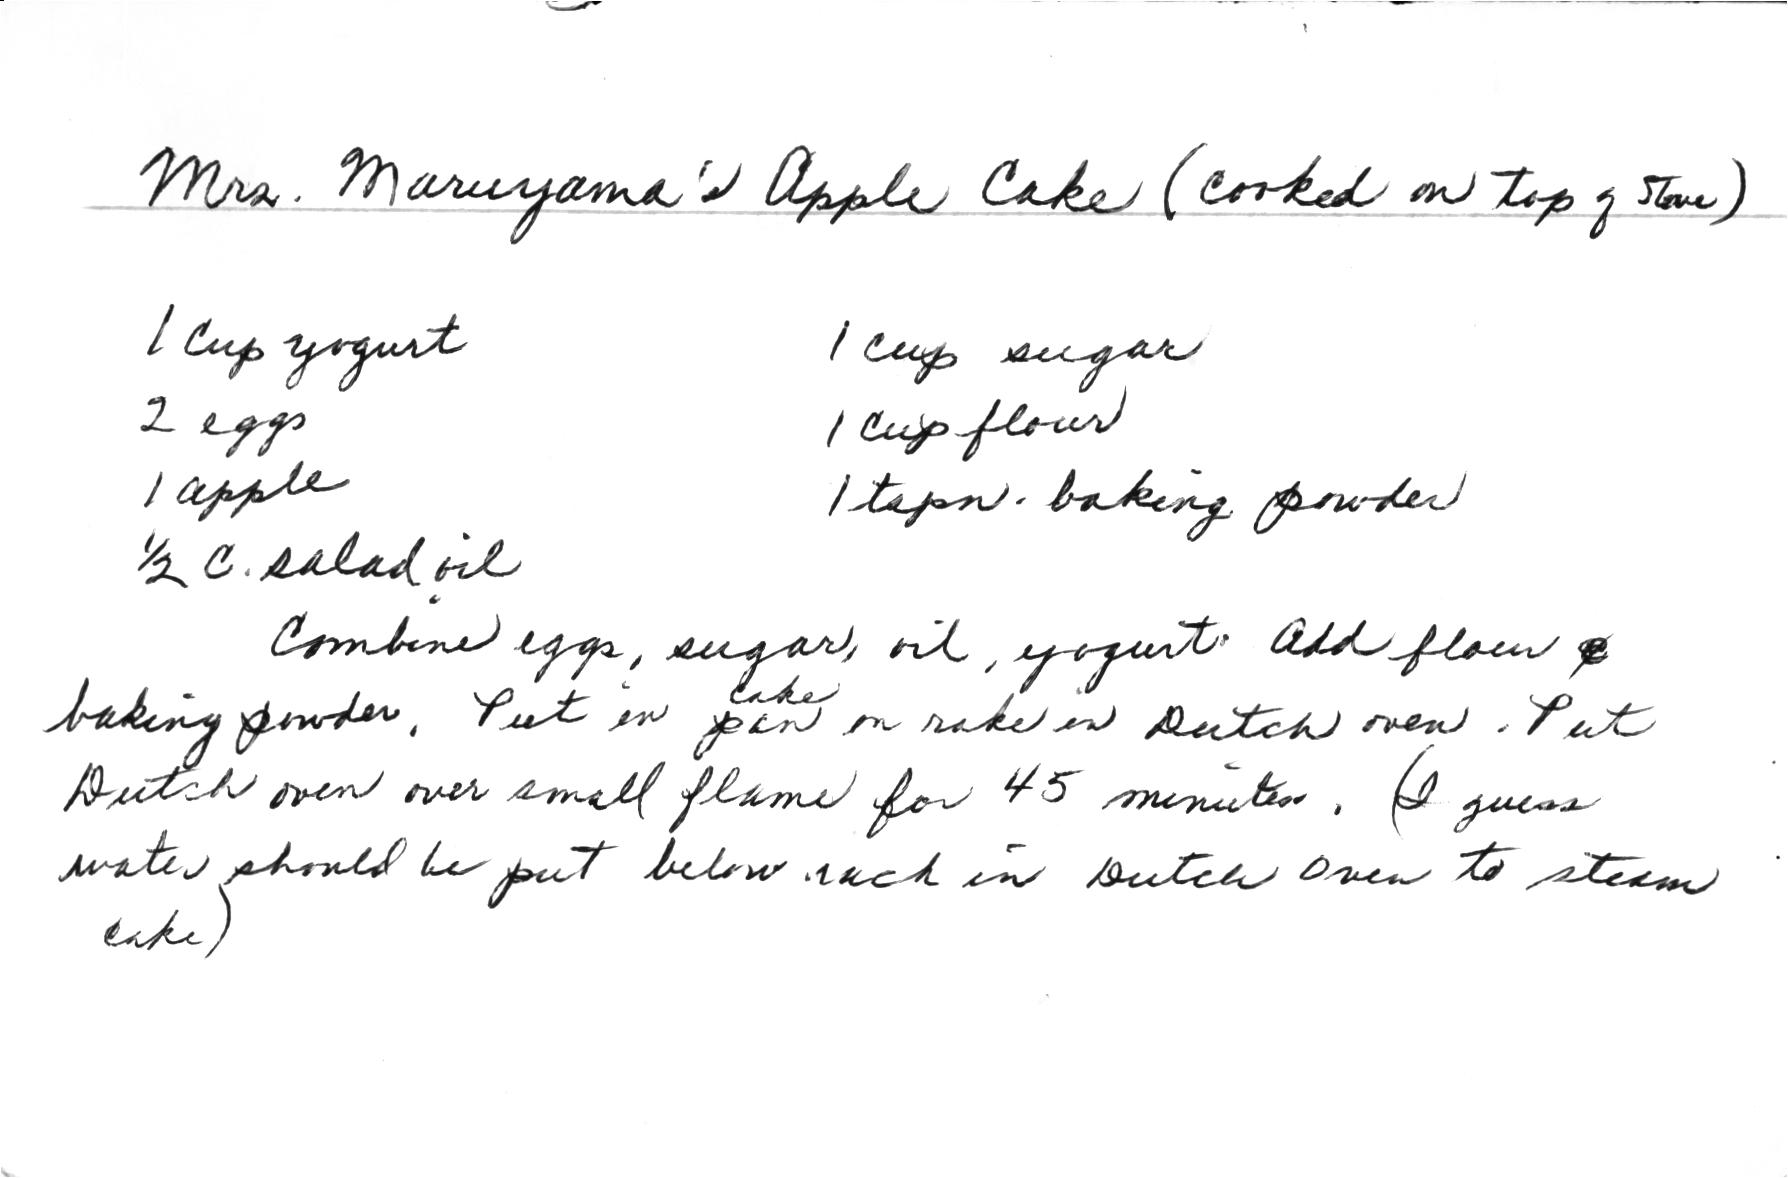 Mrs. Maruyama's Apple Cake (cooked on top of stove)
1 cup yogurt
2 eggs
1 apple
1/2 C. salad oil
1 cup sugar
1 cup flour
1 tspn. baking powder
Combine eggs, sugar, oil, yogurt. Add flour &
baking powder. Put in cake pan on rake in Dutch oven. Put
Dutch oven over small flame for 45 minutes. (I guess
water should be put below rack in Dutch Oven to steam
cake)